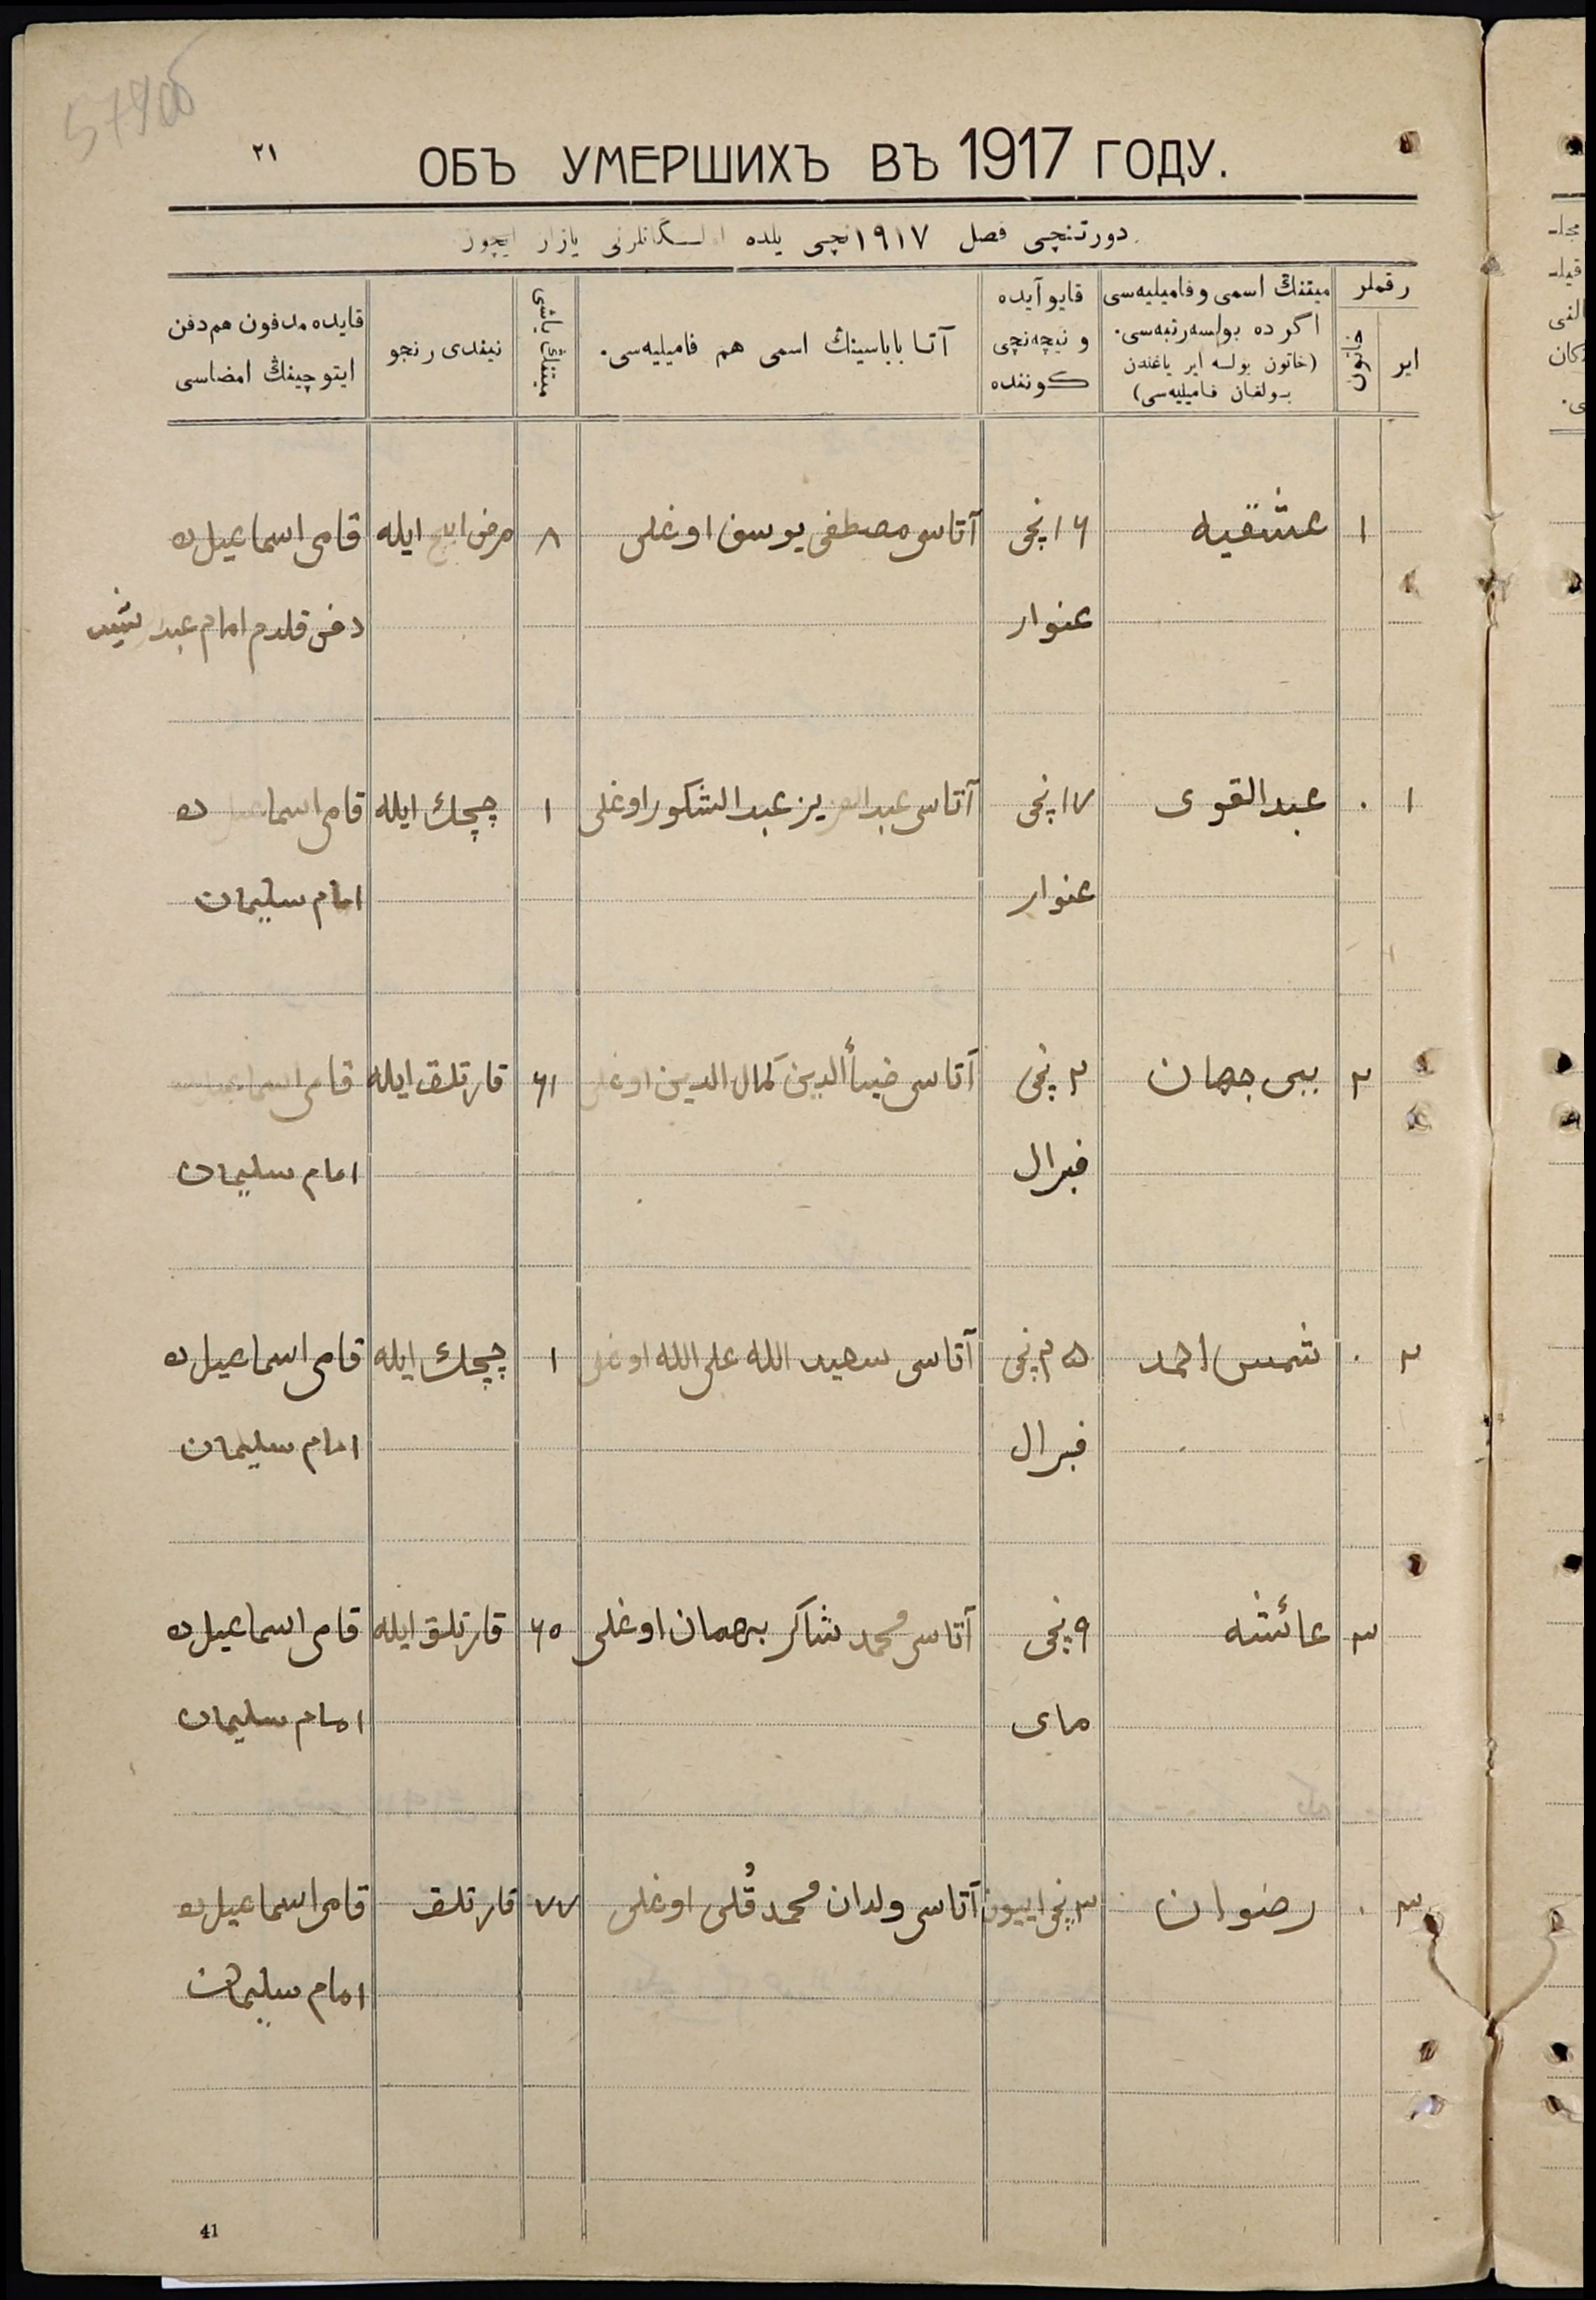 ٢١
ОБЪ УМЕРШИХЪ ВЪ 1917 ГОДУ.
دورتنچی فصل ١٩١٧نچی یلده اولـگانلرنی یازار ایچون
رقملر
ایر
خاتون
میتنڭ اسمی وفامیلیه‌سی
اگرده بولسه‌رتبه‌سی.
(خاتون بولسه ایر یاغندن
بولغان فامیلیه‌سی)
قایوآیده
ونیچه‌نچی
کوننده
آتا باباسینڭ اسمی هم فامیلیه‌سی.
میتنڭ یاشی
نیندی رنجو
قایده مدفون هم‌دفن
ایتوچینڭ امضاسی
١ عشقیه ١٦نچی آتاسی مصطفی یوسف اوغلی ٨ مرض ایله قامی اسماعیل‌ده
عنوار دفن قلدم امام عبد
١ . عبدالقوی ١٧نچی آتاسی عبدالعزیز عبدالشکور اوغلی ١ چچك ایله قامی اسما ده
عنوار امام سلیمان
٢ بیبی جهان ٢نچی آتاسی ضیأالدین کمال الدین اوغلی ٦١ قارتلق ایله قامی اسماعیل
فبرال امام سلیمان
٢ . شمس احمد ٢٥نچی آتاسی سعید الله علی الله اوغلی ١ چچك ایله قامی اسماعیل‌ده
فبرال امام سلیمان
٣ عائشه ٩نچی آتاسی محمد شاکر بهمان اوغلی ٦٥ قارتلق ایله قامی اسماعیل‌ده
مای امام سلیمان
٣ . رضوان ٣نچی ایيون آتاسی ولدان محمد قُلی اوغلی ٧٧ قارتلق قامی اسماعیل‌ده
امام سلیمان
41